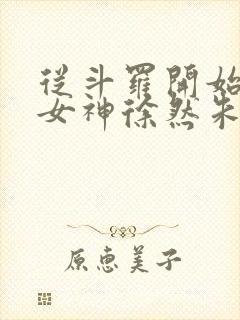 從斗羅開始
女神徐然朱
原惠美子